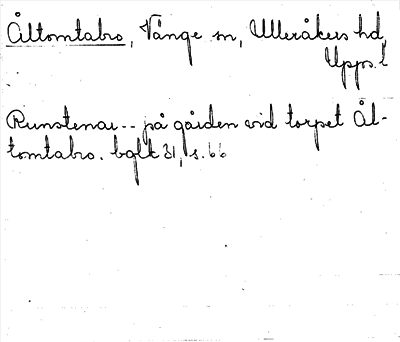 Åltomtabro, Vänge sn, Ulleråkers hd,
Upps. l
Runstenar -- på gården vid torpet Ål-
tomtabro. bglk 31, s. 66